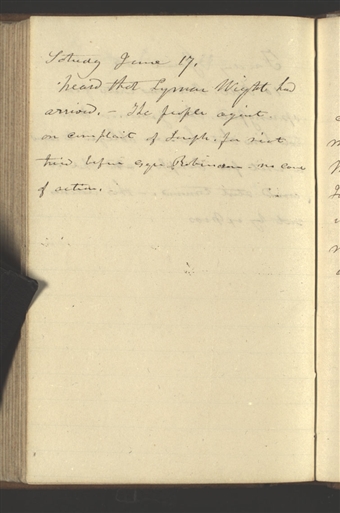 Saturday June 17.
heard that Lyman Wight had
arrived. – The people agint
on complaint of Joseph. for riot
tried before Esqr Robinson. no cause
of action.